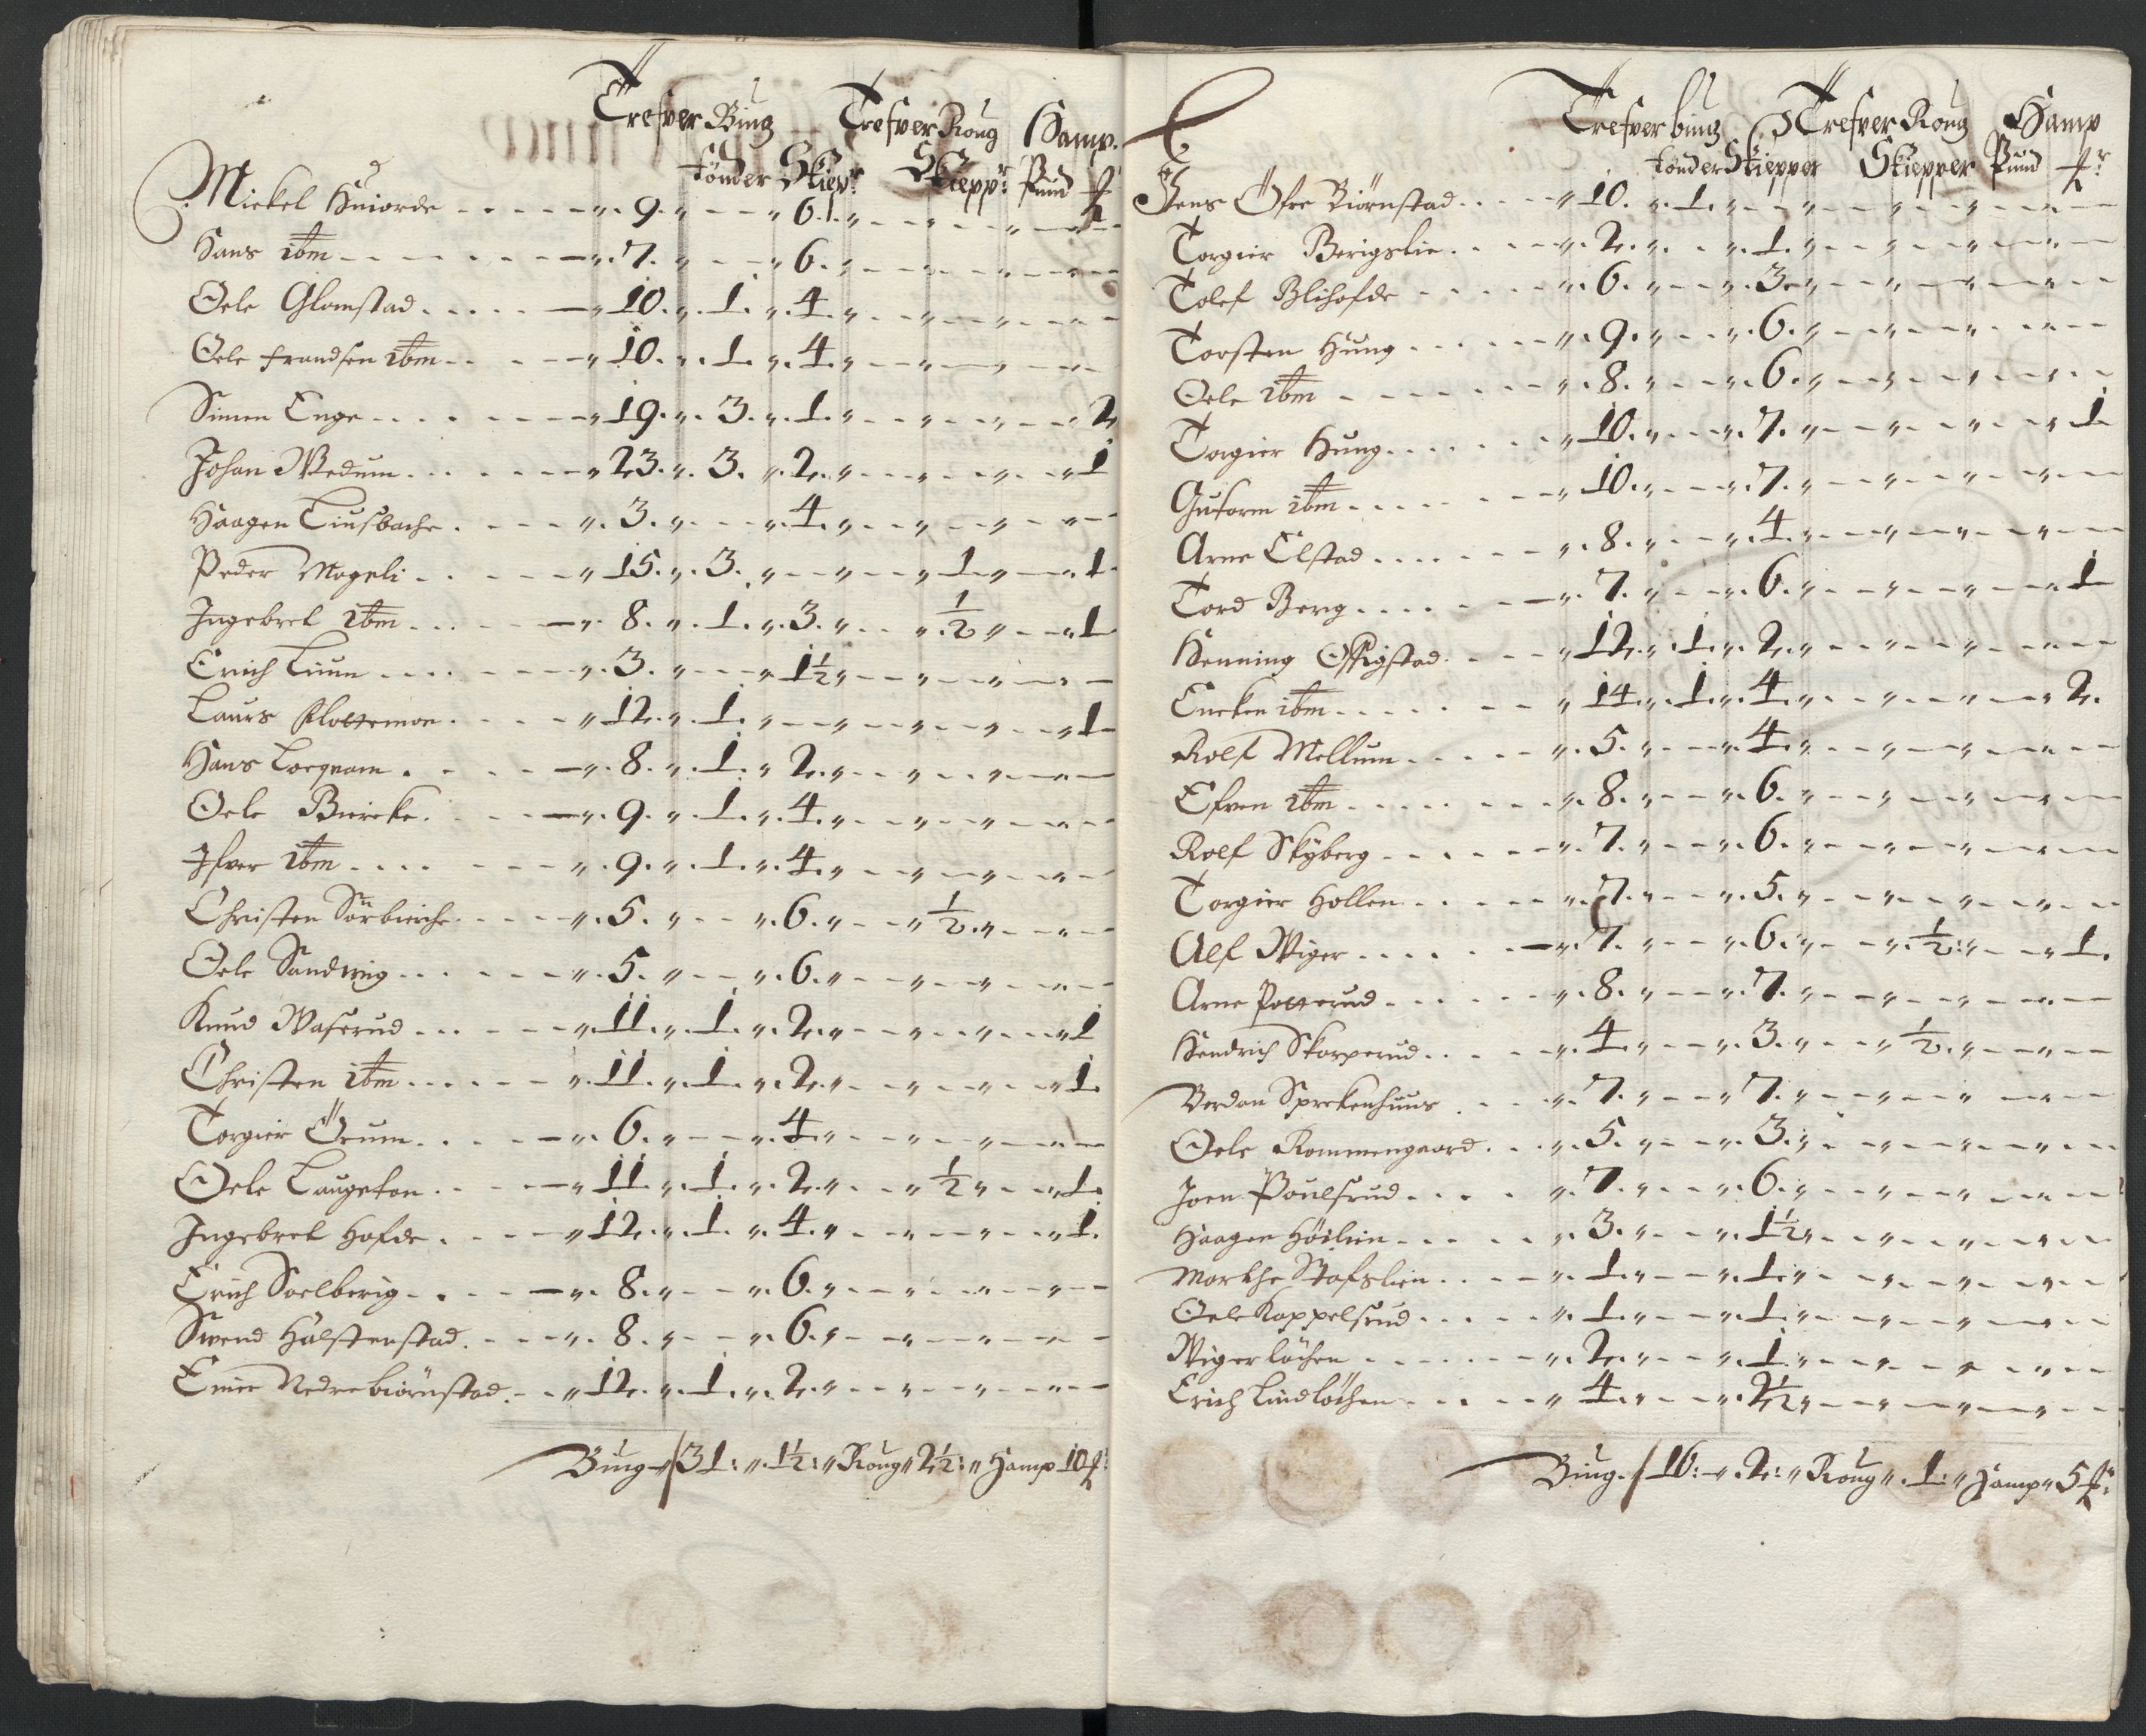 Trefver Bing Trefver Roug Hamp.
tønder Skiepr Skieppr: Pund
Mickel Hniorde 9. 6.
Hans ibm 7. 6.
Oele Glomstad 10. 1. 4.
Oele Frandsen ibm 10. 1. 4.
Simen Enge 19. 3. 1. 2
Johan Wedum 23. 3. 2. 1
Haagen Liusbache 3. 4.
Peder Mageli 15. 3. 1. 1
Ingebret ibm 8. 1. 3. ½ 1
Erich Lium 3. 1½
Laurs Klottemoe 12. 1. 1
Hans Loegnam 8. 1. 2.
Oele Biercke 9. 1. 4.
Ifver ibm 9. 1. 4.
Christen Sørbierche 5. 6. ½
Oele Sandvig 5. 6.
Knud Waserud 11. 1. 2. 1
Christen ibm 11. 1. 2. 1.
Torgier Örum 6. 4.
Oele Laugeton 11. 1. 2. ½ 1.
Ingebret Hofde 12. 1. 4. 1.
Erich Soelberig 8. 6.
Svend Halstenstad 8. 6.
Einer Nedrebiörnstad 12. 1. 2.
Bing 31: 1½: Roug 2½: Hamp 10
Trefver bing Trefver Roug Hamp
tønder Skiepper Skiepper Pund
Jens Öfre Biörnstad 10. 1.
Torgier Berigslie 2. 1.
Tolef Blihofde 6. 3.
Torsten Hung 9. 6.
Oele ibm 8. 6.
Torgier Hung 10. 7. 1
Gutorm ibm 10. 7.
Arne Elstad 8. 4.
Tord Berg 7. 6. 1
Henning Offigstad 12. 1. 2.
Encken ibm 14. 1. 4. 2.
Rolf Mellum 5. 4.
Efven ibm 8. 6.
Rolf Skÿberg 7. 6.
Torgier Hollen 7. 5.
Alf Wiger 7. 6. ½ 1.
Arne Potterud 8. 7.
Hendrich Skorperud 4. 3. ½
Verdan Sprekenhuus 7. 7.
Oele Rommengaard 5. 3.
Joen Poulsrud 7. 6.
Haagen Höilien 3. 1½
Marthe Stafslien 1. 1.
Oele Kappelsrud 1. 1.
Wiger löchen 2. 1.
Erich Lindlöchen 4. 2½
Bing 16: 2: Roug 1: Hamp 5